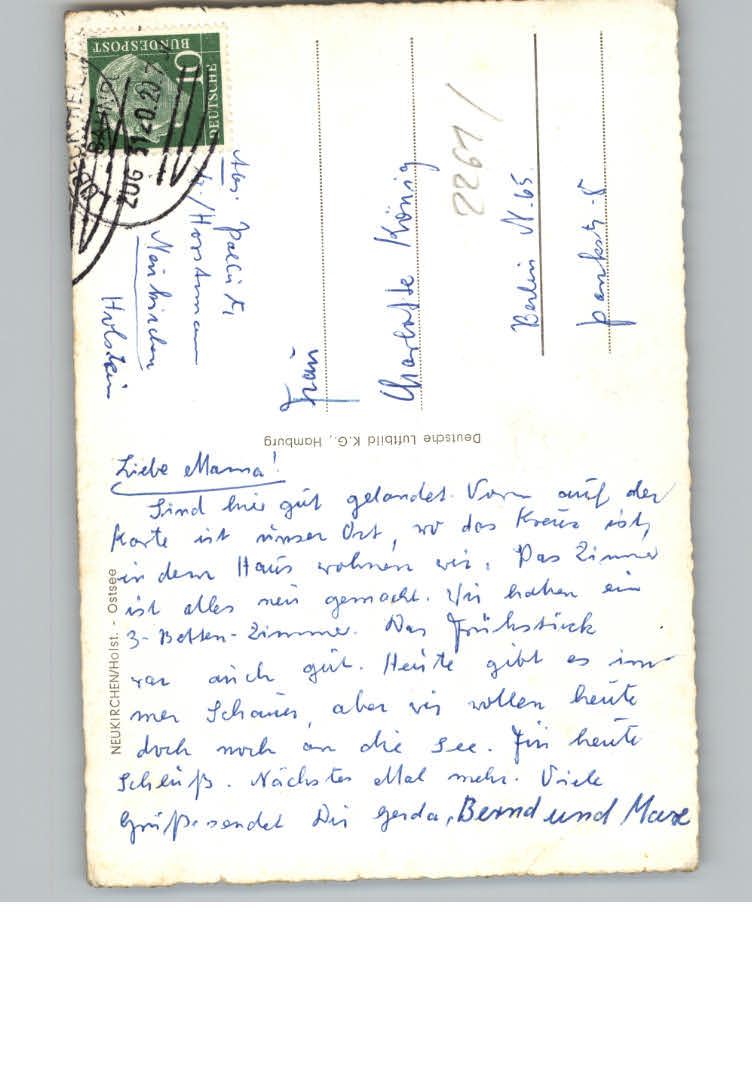 DEUTSCHE
BUNDESPOST
10
ZUG 31 20.20.7
Abs.
b./Horstmann
Neukirchen
Holstein
Frau
Charlotte König
2261/
Berlin N. 65
Deutsche Luftbild K.G., Hamburg
NEUKIRCHEN/Holst. - Ostsee
Liebe Mama!
Sind hier gut gelandet. Vorn auf der
Karte ist unser Ort, wo das Kreuz ist,
in dem Haus wohnen wir. Das Zimmer
ist alles neu gemacht. Wir haben ein
3-Betten-Zimmer. Das Frühstück
war auch gut. Heute gibt es im-
mer Schauer, aber wir wollen heute
doch noch an die See. Für heute
Schluß. Nächstes Mal mehr. Viele
Grüße sendet Dir Gerda, Bernd und Maxe